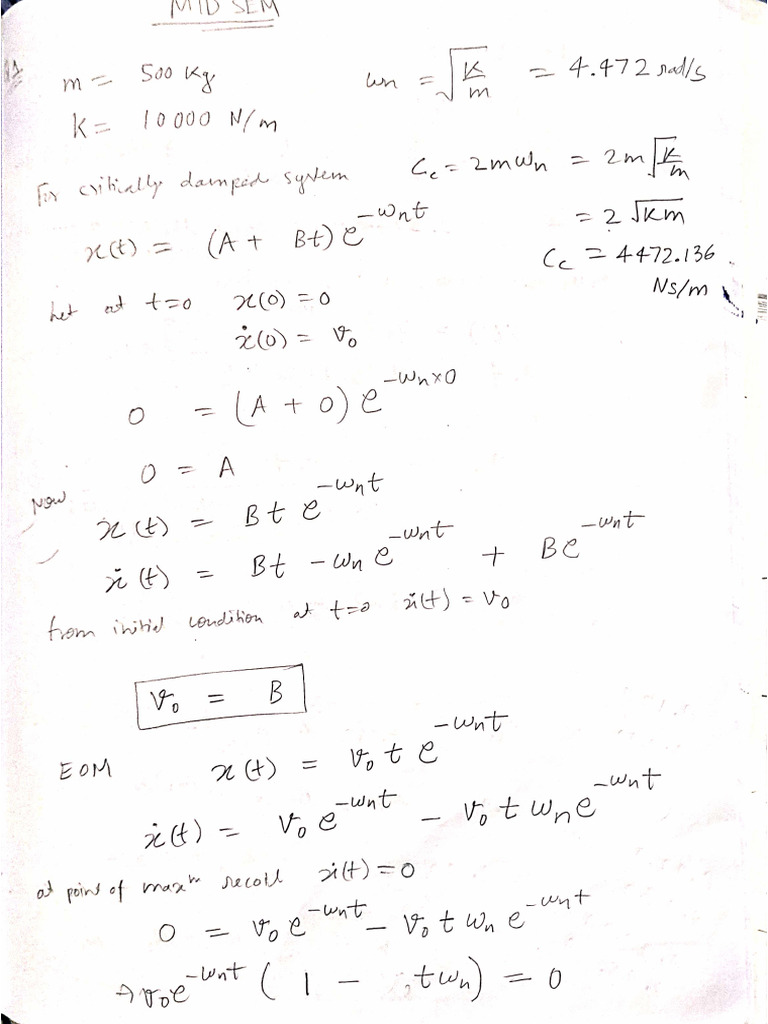 MID SEM
m = 500 Kg
k = 10000 N/m
ωn = √(K/m) = 4.472 rad/s
For critically damped system
Cc = 2mωn = 2m√(K/m)
= 2√Km
Cc = 4472.136
Ns/m
x(t) = (A + Bt) e^(-ωnt)
Let at t=0 x(0) = 0
ẋ(0) = v₀
0 = (A + 0) e^(-ωn×0)
0 = A
Now
x(t) = Bt e^(-ωnt)
ẋ(t) = Bt -ωn e^(-ωnt) + Be^(-ωnt)
from initial condition at t=0 ẋ(t) = v₀
v₀ = B
EOM x(t) = v₀ t e^(-ωnt)
ẋ(t) = v₀ e^(-ωnt) - v₀ t ωn e^(-ωnt)
at point of maxᵐ recoil ẋ(t) = 0
0 = v₀ e^(-ωnt) - v₀ t ωn e^(-ωnt)
v₀e^(-ωnt) ( 1 - tωn) = 0